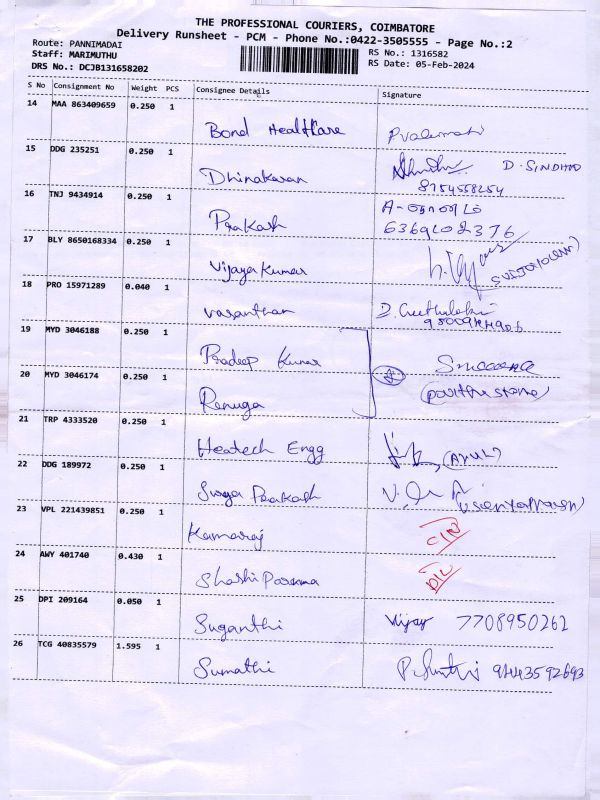 THE PROFESSIONAL COURIERS, COIMBATORE
Delivery Runsheet - PCM - Phone No.:0422-3505555 - Page No.:2
Route: PANNIMADAI
Staff: MARIMUTHU
DRS No.: DCJB131658202
RS No.: 1316582
RS Date: 05-Feb-2024
S No Consignment No Weight PCS Consignee Details Signature
14 MAA 863409659 0.250 1
Bond Healthare
15 DDG 235251 0.250 1
Dhinakaran D. SINDHU
8754558254
16 TNJ 9434914 0.250 1
Prakash 6369202376
17 BLY 8650168334 0.250 1
Vijaya Kumar
18 PRO 15971289 0.040 1
Vasanthan
19 MYD 3046188 0.250 1
Pradeep Kumar
20 MYD 3046174 0.250 1
Renuga
21 TRP 4333520 0.250 1
Heatech Engg (ARUL)
22 DDG 189972 0.250 1
Surya Prakash
23 VPL 221439851 0.250 1
Kamaraj
24 AWY 401740 0.430 1
Shashi D/L
25 DPI 209164 0.050 1
Suganthi Vijay 7708950262
26 TCG 40835579 1.595 1
Sumathi 9443592693